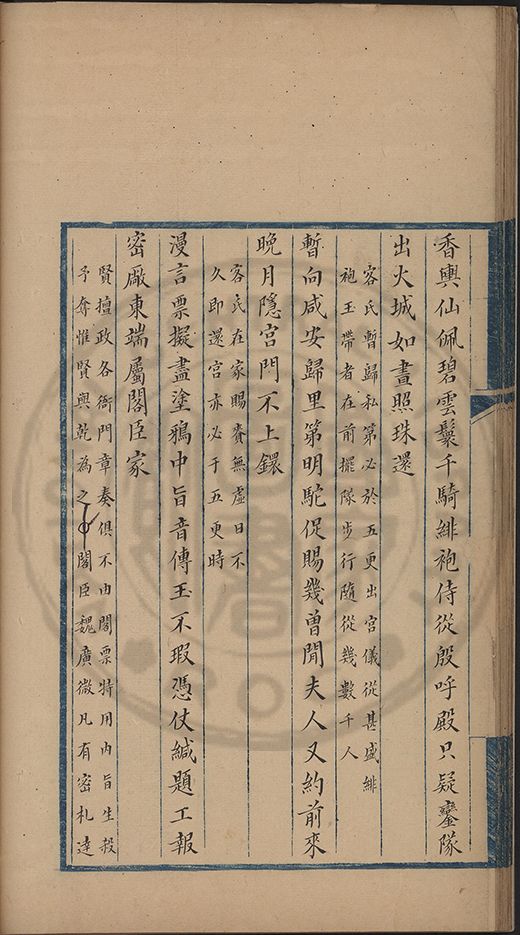 香輿仙佩碧雲鬟千騎緋袍侍從殷呼殿只疑鑾隊
出火城如晝照珠還
容氏暫歸私第必於五更出宮儀從甚盛緋
袍玉帶者在前擺隊步行隨從幾數千人
暫向咸安歸里第明駝促賜幾曽聞夫人又約前來
晩月隱宮門不上鐶
客氏在家賜賚無虛日不
久即還宮亦必于五更時
漫言票擬盡塗鴉中旨音傳玉不瑕憑仗緘題工報
密廠東端屬閣臣家
賢擅政各衙門章奏俱不由閣票特用内旨生殺
予奪惟賢與乾為之閣臣魏廣微凡有密札達